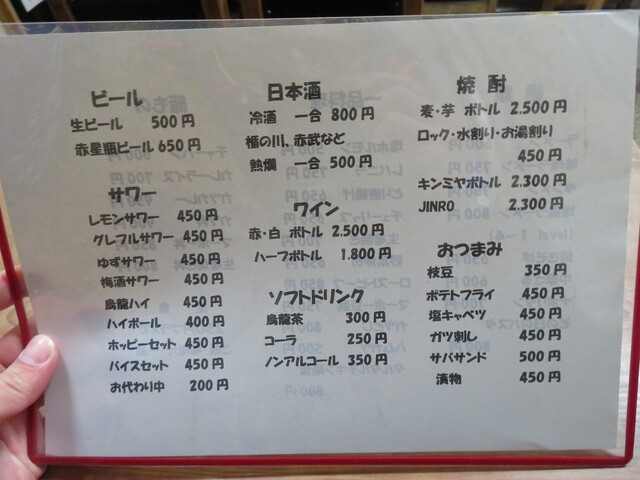 ビール
生ビール 500円
赤星瓶ビール 650円
サワー
レモンサワー 450円
グレフルサワー 450円
ゆずサワー 450円
梅酒サワー 450円
烏龍ハイ 450円
ハイボール 400円
ホッピーセット 450円
バイスセット 450円
お代わり中 200円
日本酒
冷酒 一合 800円
楯の川、赤武など
熱燗 一合 500円
ワイン
赤・白 ボトル 2.500円
ハーフボトル 1.800円
ソフトドリンク
烏龍茶 300円
コーラ 250円
ノンアルコール 350円
焼酎
麦・芋 ボトル 2.500円
ロック・水割り・お湯割り
450円
キンミヤボトル 2.300円
JINRO 2.300円
おつまみ
枝豆 350円
ポテトフライ 450円
塩キャベツ 450円
ガツ刺し 450円
サバサンド 500円
漬物 450円